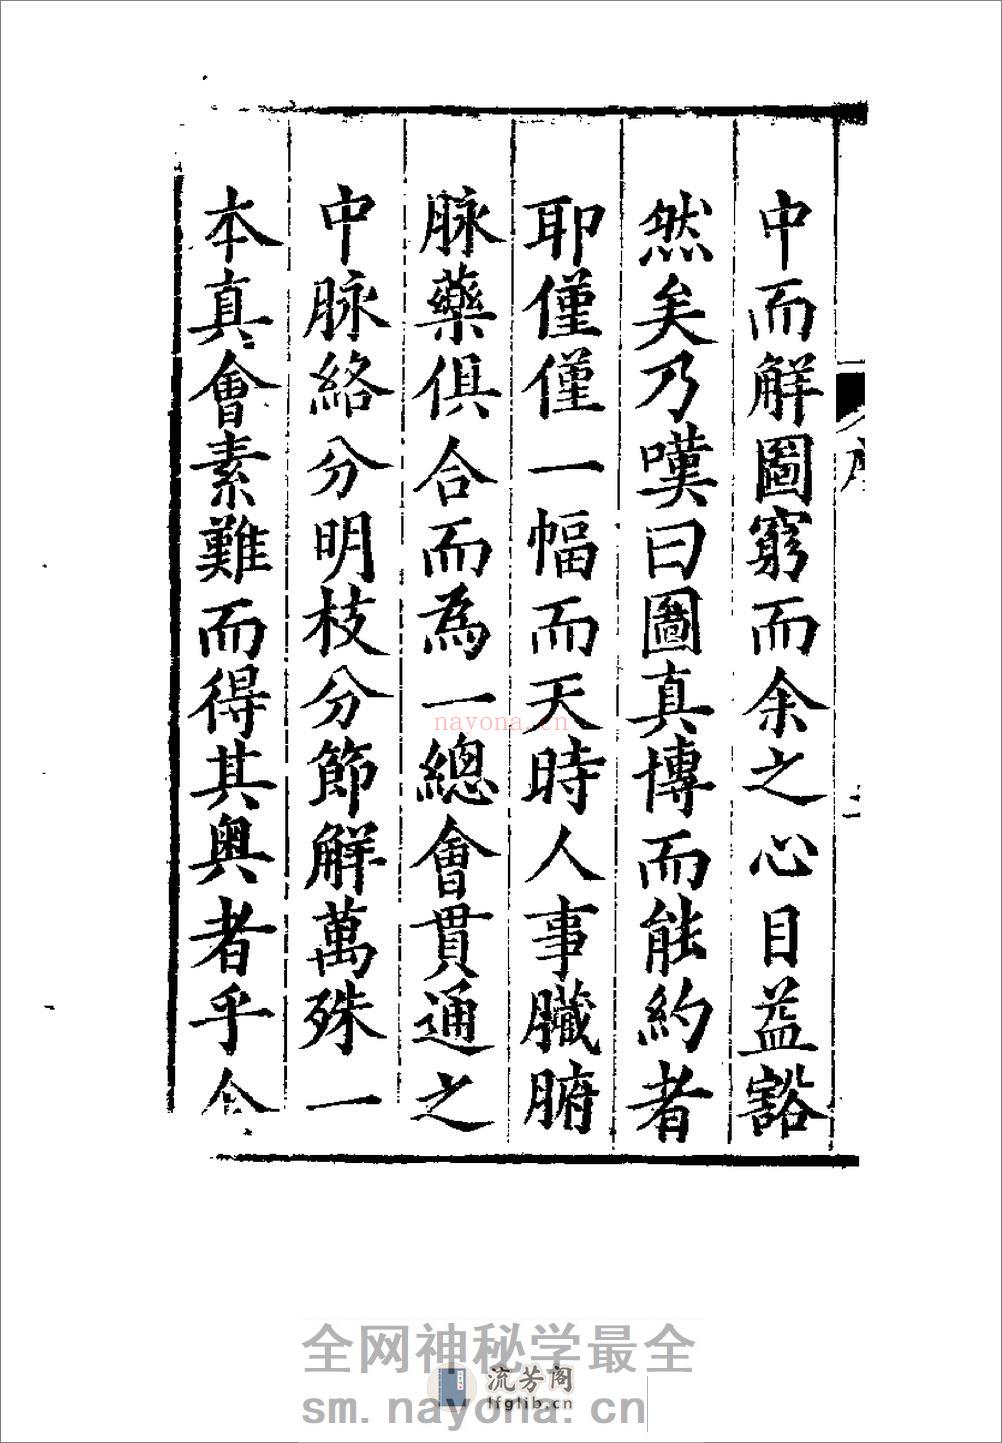 中而解圖窮而余之心目益豁
然矣乃嘆曰圖真博而能約者
耶僅僅一幅而天時人事臟腑
脉藥俱合而為一總會貫通之
中脉絡分明枝分節解萬殊一
本真會素難而得其奧者乎今
序
二
nayona.cn
全网神秘学最全
流芳阁
lfglib.cn
sm.nayona.cn